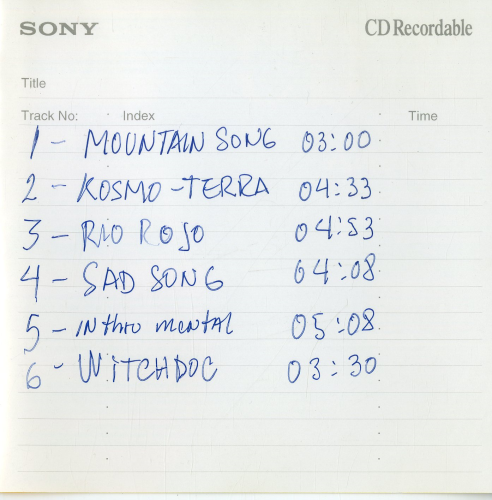 SONY CD Recordable
Title
Track No: Index Time
1 - MOUNTAIN SONG 03:00
2 - KOSMO-TERRA 04:33
3 - RIO ROJO 04:53
4 - SAD SONG 04:08
5 - INthro mental 05:08
6 - WITCHDOC 03:30